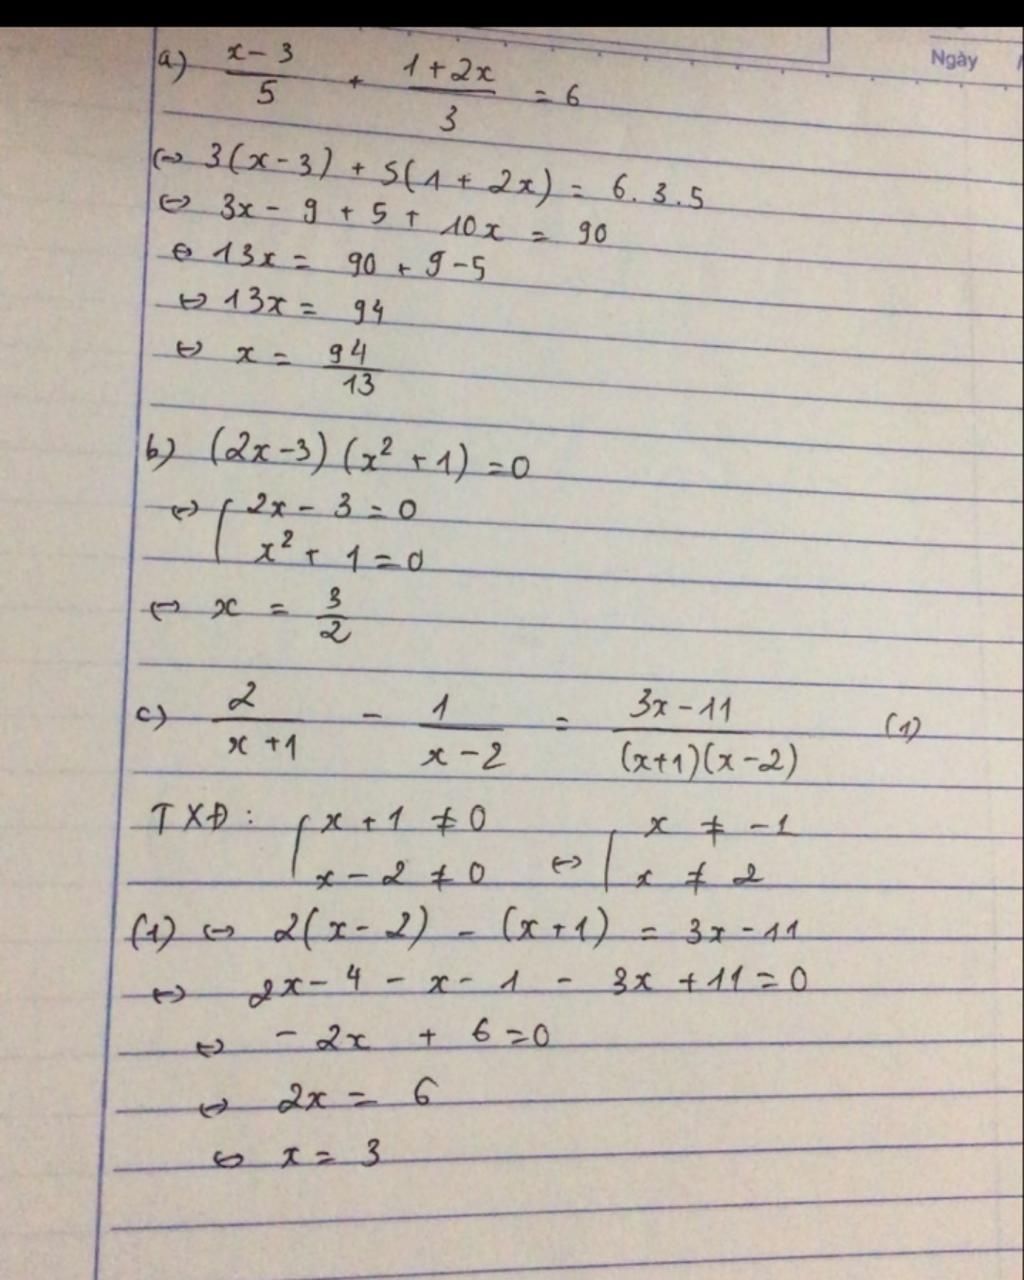 Ngày /
a) \frac{x-3}{5} + \frac{1+2x}{3} = 6
⇔ 3(x-3) + 5(1+2x) = 6.3.5
⇔ 3x - 9 + 5 + 10x = 90
⇔ 13x = 90 + 9 - 5
⇔ 13x = 94
⇔ x = \frac{94}{13}
b) (2x-3)(x² + 1) = 0
⇔ [ 2x - 3 = 0
x² + 1 = 0
⇔ x = \frac{3}{2}
c) \frac{2}{x+1} - \frac{1}{x-2} = \frac{3x-11}{(x+1)(x-2)} (1)
TXĐ: { x + 1 ≠ 0 ⇔ { x ≠ -1
x - 2 ≠ 0 x ≠ 2
(1) ⇔ 2(x-2) - (x+1) = 3x - 11
⇔ 2x - 4 - x - 1 - 3x + 11 = 0
⇔ - 2x + 6 = 0
⇔ 2x = 6
⇔ x = 3